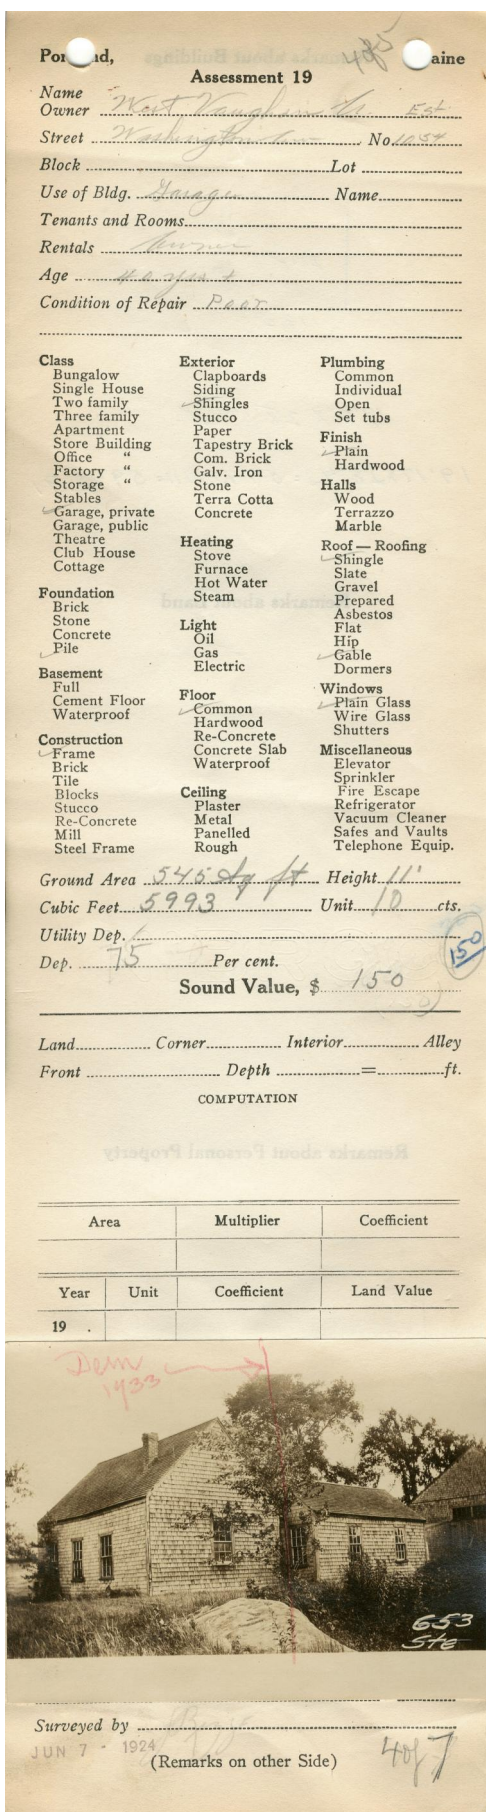 Portland, Maine
4 of 5
Assessment 19
Name
Owner West Vaughan Est
Street Washington Ave No. 1054
Block Lot
Use of Bldg. Garage Name
Tenants and Rooms
Rentals Owner
Age 40 yrs +
Condition of Repair Poor
Class
Bungalow
Single House
Two family
Three family
Apartment
Store Building
Office "
Factory "
Storage "
Stables
✓ Garage, private
Garage, public
Theatre
Club House
Cottage
Foundation
Brick
Stone
Concrete
✓ Pile
Basement
Full
Cement Floor
Waterproof
Construction
✓ Frame
Brick
Tile
Blocks
Stucco
Re-Concrete
Mill
Steel Frame
Exterior
Clapboards
Siding
✓ Shingles
Stucco
Paper
Tapestry Brick
Com. Brick
Galv. Iron
Stone
Terra Cotta
Concrete
Heating
Stove
Furnace
Hot Water
Steam
Light
Oil
Gas
Electric
Floor
✓ Common
Hardwood
Re-Concrete
Concrete Slab
Waterproof
Ceiling
Plaster
Metal
Panelled
Rough
Plumbing
Common
Individual
Open
Set tubs
Finish
✓ Plain
Hardwood
Halls
Wood
Terrazzo
Marble
Roof — Roofing
✓ Shingle
Slate
Gravel
Prepared
Asbestos
Flat
Hip
✓ Gable
Dormers
Windows
✓ Plain Glass
Wire Glass
Shutters
Miscellaneous
Elevator
Sprinkler
Fire Escape
Refrigerator
Vacuum Cleaner
Safes and Vaults
Telephone Equip.
Ground Area 545 Sq ft Height 11'
Cubic Feet 5993 Unit 10 cts.
Utility Dep.
150
Dep. 75 Per cent.
Sound Value, $ 150
Land Corner Interior Alley
Front Depth = ft.
COMPUTATION
Area Multiplier Coefficient
Year Unit Coefficient Land Value
19 .
Dem
1933
653
Ste
Surveyed by
JUN 7 - 1924
4 of 7
(Remarks on other Side)